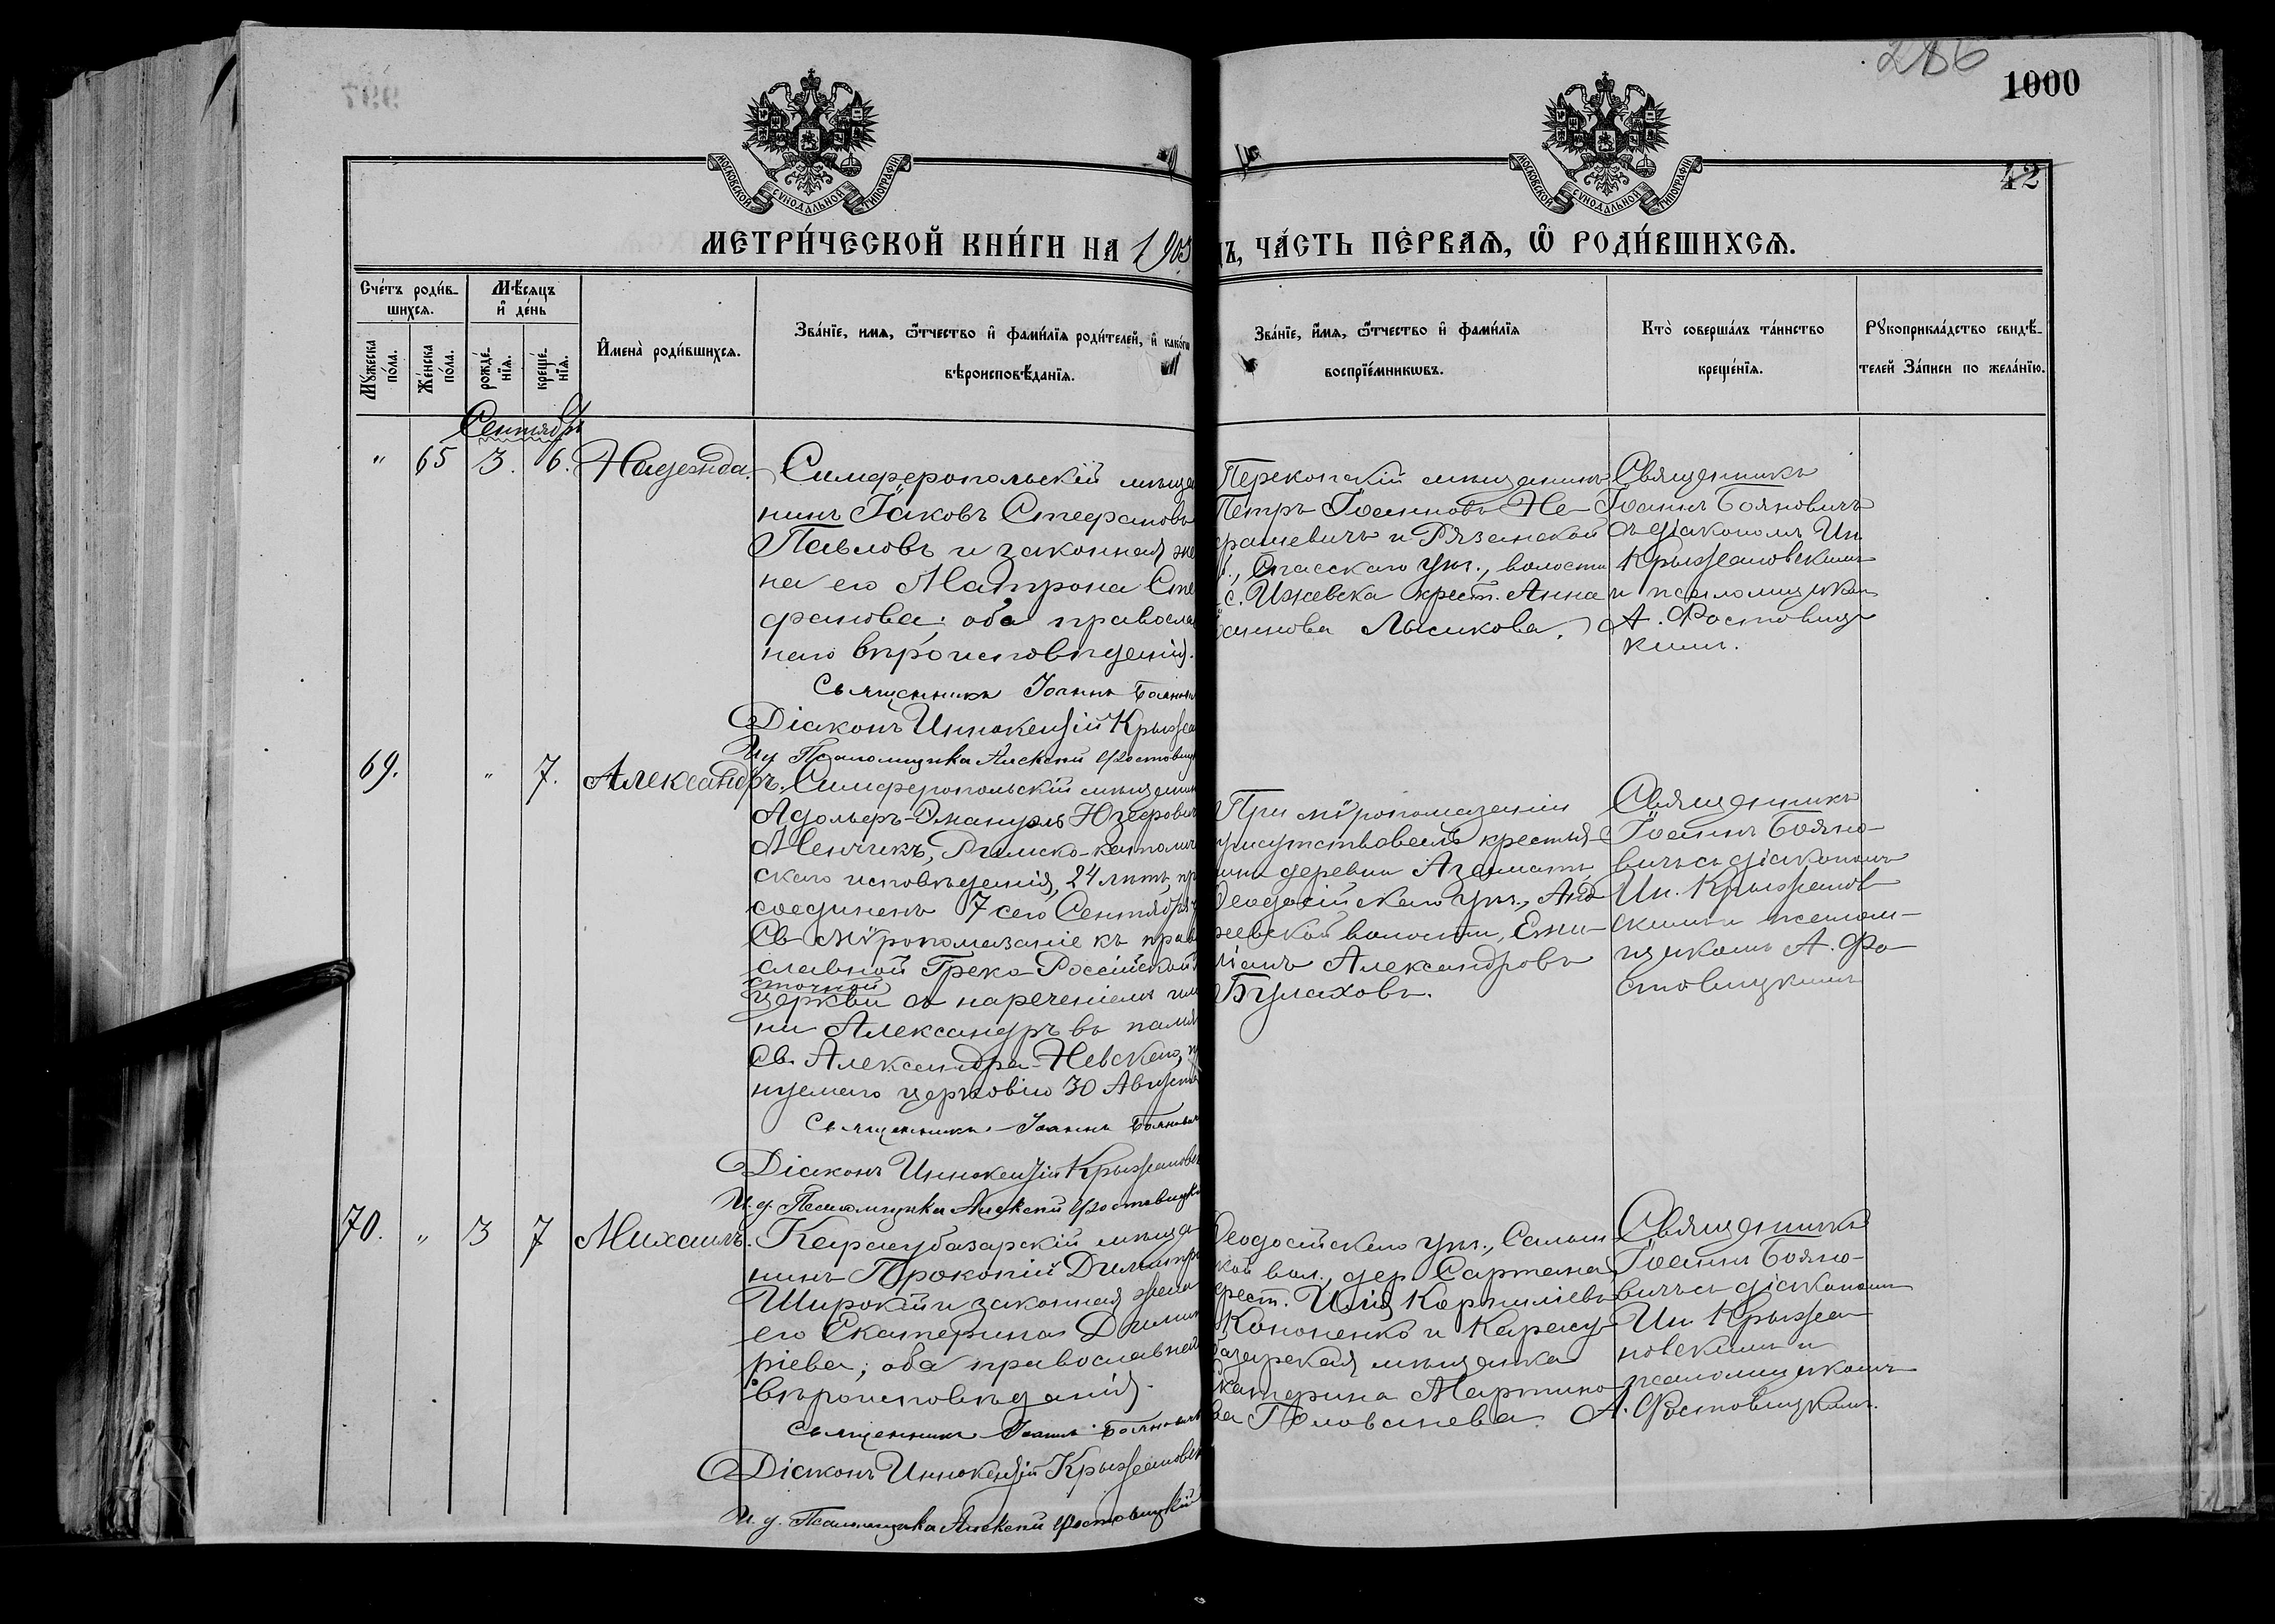 286
1000
997
42
МОСКОВСКОЙ СѴНОДАЛЬНОЙ ТИПОГРАФІИ
МОСКОВСКОЙ СѴНОДАЛЬНОЙ ТИПОГРАФІИ
МЕТРИ́ЧЕСКОЙ КНИ́ГИ НА 1903
ДЪ, ЧА́СТЬ ПЕ́РВАѦ, Ѽ РОДИ́ВШИХСѦ.
Сче́тъ роди́в-
шихсѧ.
Мꙋ́жеска
по́ла.
Же́нска
по́ла.
Мѣ́сяцъ
и де́нь
рожде́-
нїѧ.
креще́-
нїѧ.
И҆мена̀ роди́вшихсѧ.
Зва́нїе, имѧ, ѻ҆́тчество и҆ фами́лїѧ роди́телей, и҆ како́гѡ
вѣроисповѣ́данїѧ.
Зва́нїе, и҆́мѧ, ѻ҆́тчество и҆ фами́лїѧ
воспрїе́мникѡвъ.
Кто̀ соверша́лъ та́инство
креще́нїѧ.
Рꙋкоприкла́дство свидѣ́-
телей За́писи по жела́нїю.
Сентябрь
" 65 3. 6. Надежда.
Симферопольскій мѣща
нинъ Іаковъ Стефановъ
Павловъ и законная же
на его Матрона Сте
фанова; оба православ
наго вѣроисповѣданія.
Священникъ Іоаннъ Боянов
Діаконъ Иннокентій Крыжан
И д Псаломщика Алексѣй Фостовиц
Перекопскій мѣщанинъ
Петръ Іоанновъ Не-
рашевичъ и Рязанской
б., Спасскаго уѣз., волости
с. Ижевска крест. Анна
аннова Лысикова.
Священникъ
Іоаннъ Бояновичъ
съ діакономъ Ин.
Крыжановскимъ
и псаломщикомъ
А. Фостовиц
кимъ.
69. " 7. Александръ.
Симферопольскій мѣщанин
Адольфъ-Эмануэль Юзефович
Менчикъ, Римско-католич
скаго исповѣданія, 24 лѣтъ, пр
соединенъ 7 сего Сентября
Св мѵропомазаніе къ прав
славной Греко-Россійской
сточной
церкви съ нареченіемъ име
ни Александръ въ памят
Св. Александра-Невскаго, п
нуемаго церковію 30 Августа
Священникъ Іоаннъ Боянович
Діаконъ Иннокентій Крыжановс
И. д. Псаломщика Алексѣй Фостовицкі
При мѵропомазаніи
присутствовалъ крестья-
нинъ деревни Азаматъ
Ѳеодосійскаго уѣз., Анд
реевской волости, Еми-
ліанъ Александровъ
Булаховъ.
Священникъ
Іоаннъ Бояно-
вичъ съ діакономъ
Ин. Крыжанов
скимъ и псалом-
щикомъ А. Фо-
стовицкимъ
70. " 3 7 Михаилъ.
Карасубазарскій мѣща-
нинъ Прокопій Димитрі
Широкій и законная жена
его Екатерина Димит
ріева; оба православнаг
вѣроисповѣданія.
Священникъ Іоаннъ Боянович
Діаконъ Иннокентій Крыжановск
И. д. Псаломщика Алексѣй Фостовицкій
Ѳеодосійскаго уѣз., Салын
кой вол., дер. Сартана
крест. Илія Корниліевъ
Кононенко и Карасу-
базарская мѣщанка
Екатерина Мартино-
ва Головачева.
Священникъ
Іоаннъ Бояно-
вичъ съ діакономъ
Ин. Крыжа-
новскимъ и
псаломщикомъ
А. Фостовицкимъ.